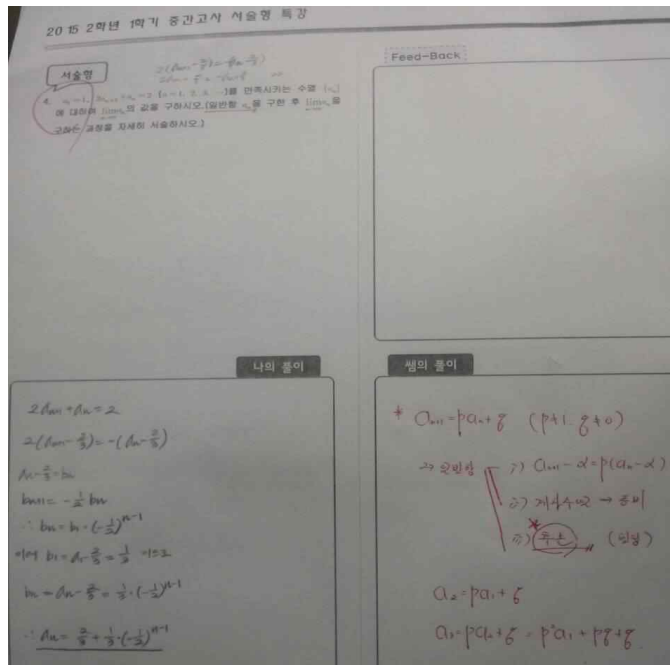 2015 2학년 1학기 중간고사 서술형 특강
서술형
Feed-Back
4. a₁=1, 2aₙ₊₁+aₙ=2 (n=1, 2, 3, …)를 만족시키는 수열 {aₙ}
에 대하여 lim aₙ의 값을 구하시오.(일반항 aₙ을 구한 후 lim aₙ을
구하는 과정을 자세히 서술하시오.)
나의 풀이
2aₙ₊₁+aₙ=2
2(aₙ₊₁-2/3)=-(aₙ-2/3)
aₙ-2/3=bₙ
bₙ₊₁=-1/2bₙ
∴ bₙ=b₁·(-1/2)ⁿ⁻¹
bₙ=aₙ-2/3=1/3·(-1/2)ⁿ⁻¹
∴ aₙ=2/3+1/3·(-1/2)ⁿ⁻¹
쌤의 풀이
* aₙ₊₁=paₙ+q (p≠1, q≠0)
i) aₙ₊₁-α=p(aₙ-α)
a₂=pa₁+q
a₃=pa₂+q=p²a₁+pq+q